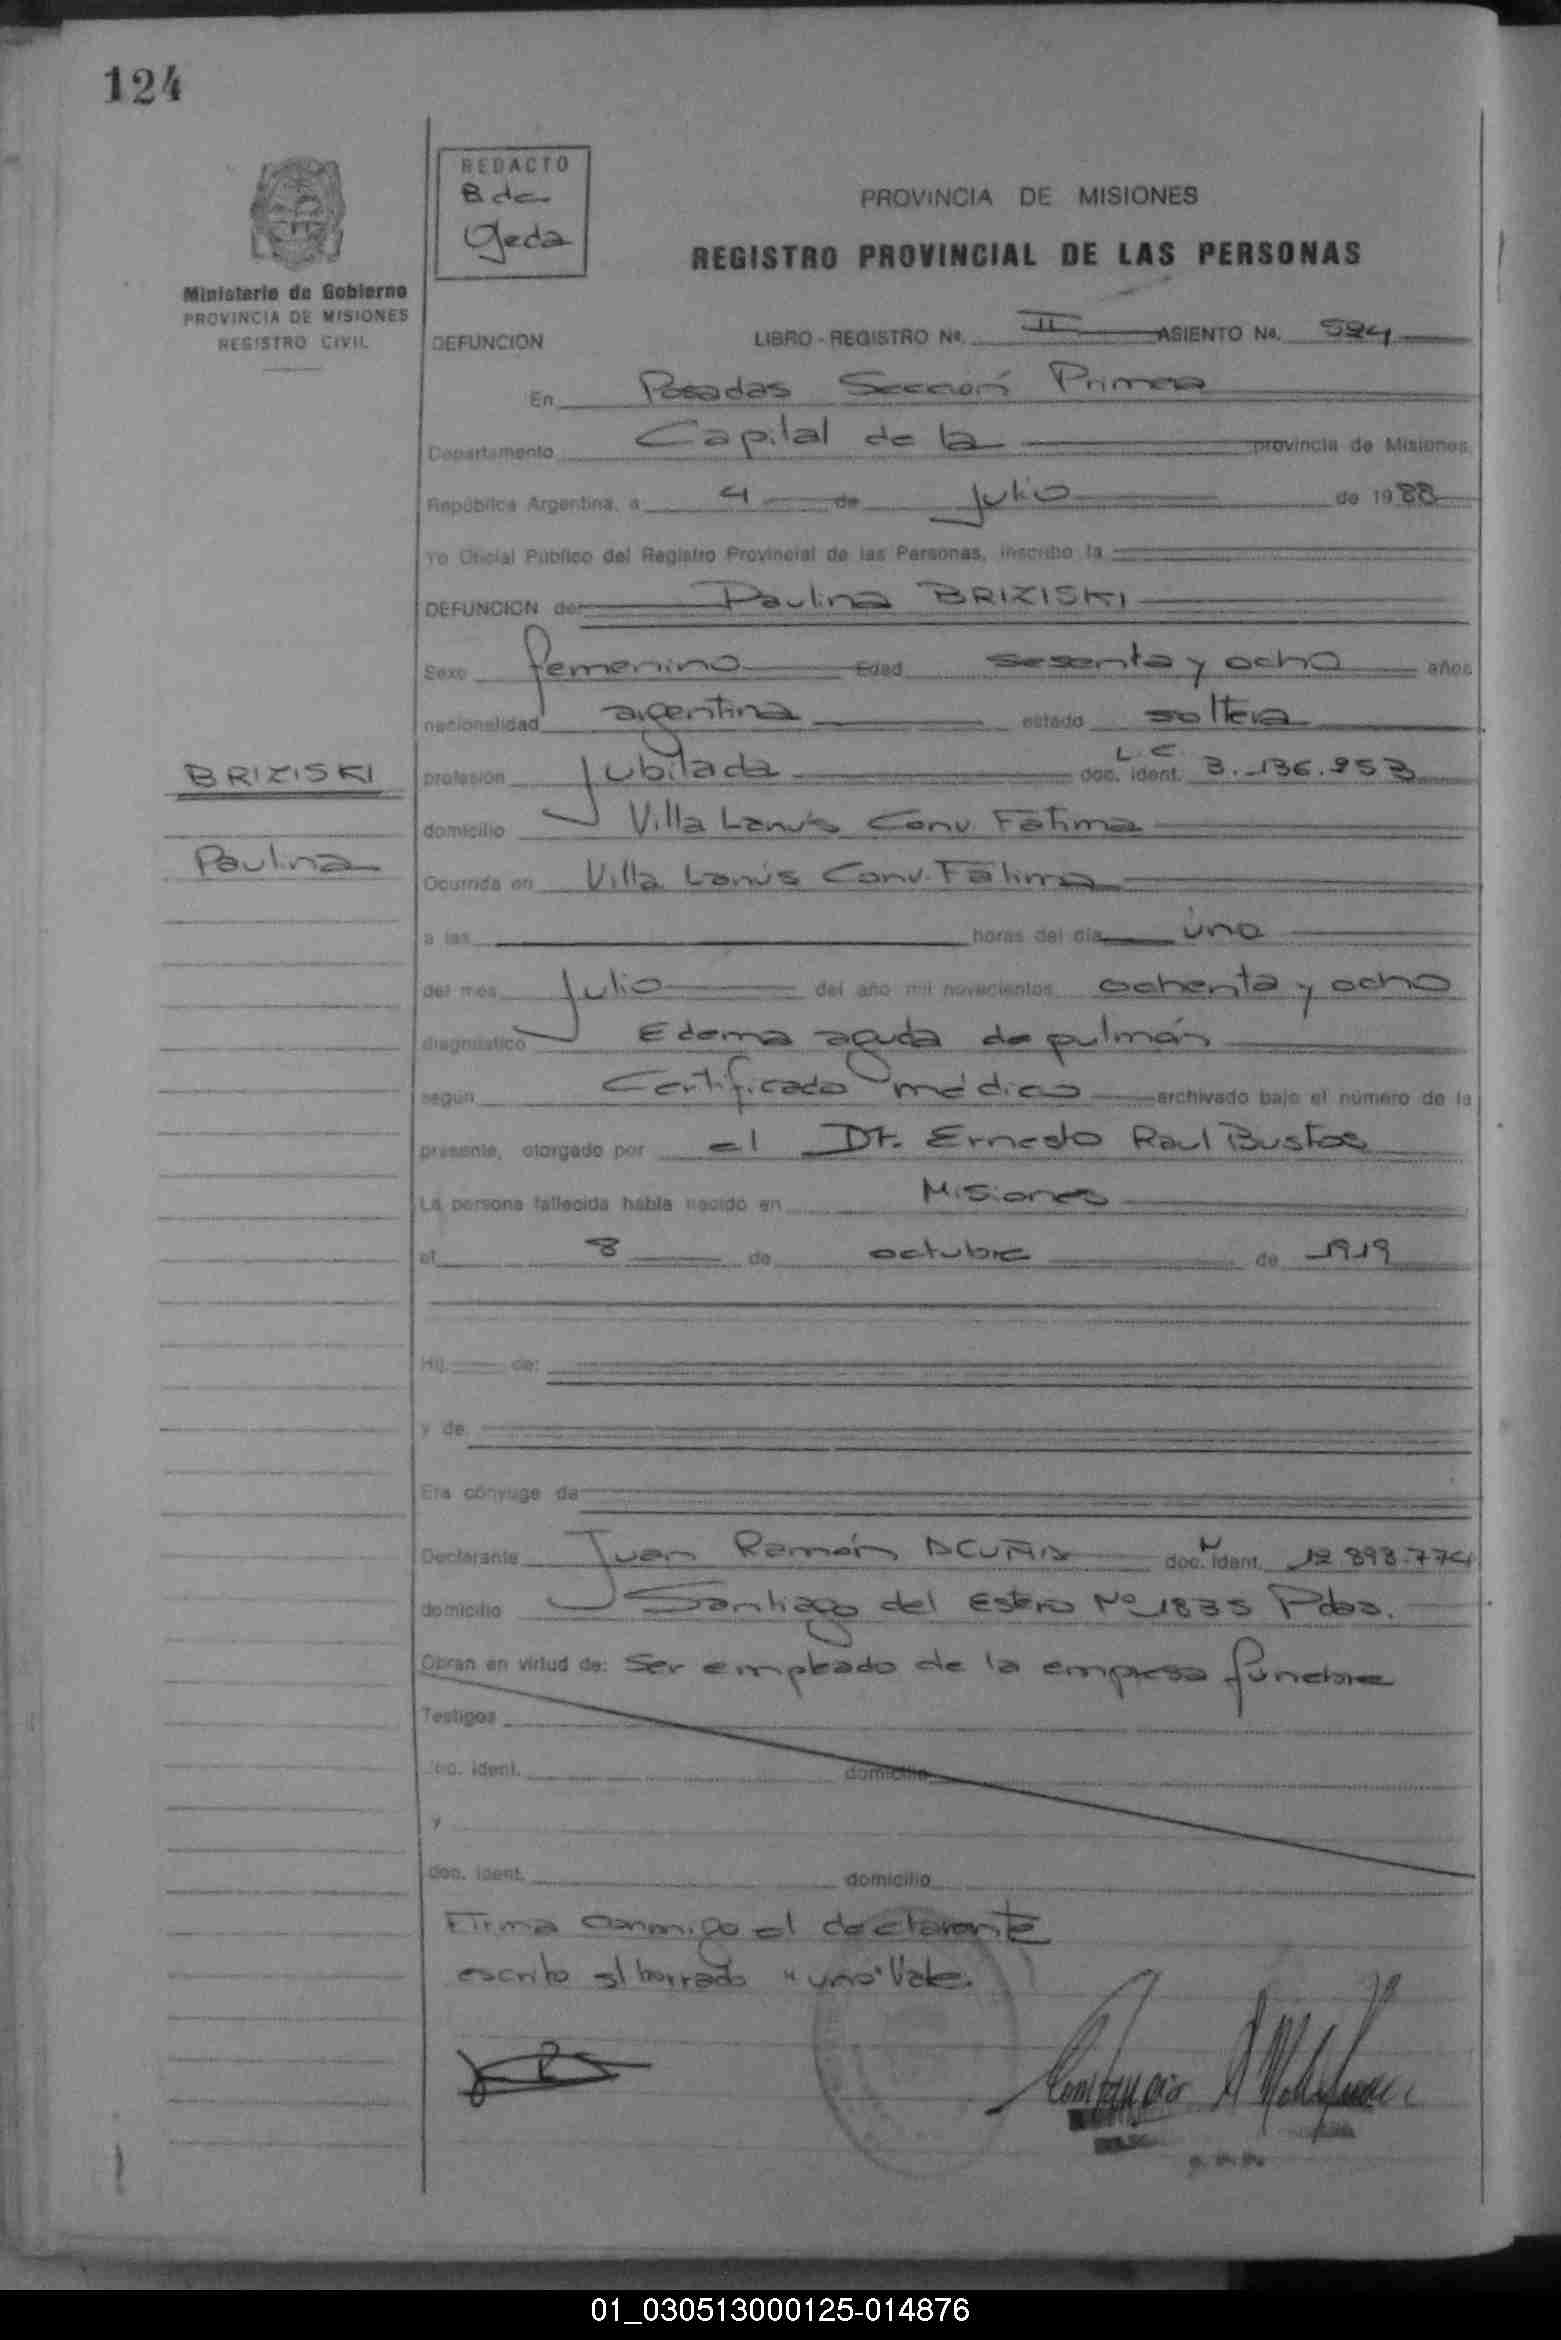 124
REDACTO
B de
Ojeda
Ministerio de Gobierno
PROVINCIA DE MISIONES
REGISTRO CIVIL
PROVINCIA DE MISIONES
REGISTRO PROVINCIAL DE LAS PERSONAS
DEFUNCION LIBRO - REGISTRO No. II ASIENTO No. 524
En Posadas Sección Primera
Departamento Capital de la provincia de Misiones,
República Argentina, a 4 de Julio de 1988
Yo Oficial Público del Registro Provincial de las Personas, inscribo la
DEFUNCION de Paulina BRIZISKI
Sexo femenino Edad sesenta y ocho años
nacionalidad argentina estado soltera
BRIZISKI
Paulina
profesión Jubilada doc. ident. L.C. 3.136.953
domicilio Villa Lanús Conv. Fátima
Ocurrida en Villa Lanús Conv. Fátima
a las horas del día uno
del mes Julio del año mil novecientos ochenta y ocho
diagnóstico Edema aguda de pulmón
según Certificado médico archivado bajo el número de la
presente, otorgado por el Dr. Ernesto Raul Bustos
La persona fallecida había nacido en Misiones
el 8 de octubre de 1919
Hij de:
y de
Era cónyuge de
Declarante Juan Ramón ACUÑA doc. ident. 12.898.774
domicilio Santiago del Estero Nº 1835 Pdas.
Obran en virtud de: Ser empleado de la empresa fúnebre
Testigos
doc. ident. domicilio
y
doc. ident. domicilio
Firma conmigo el declarante
escrito s/ borrado "uno" Vale.
01_030513000125-014876